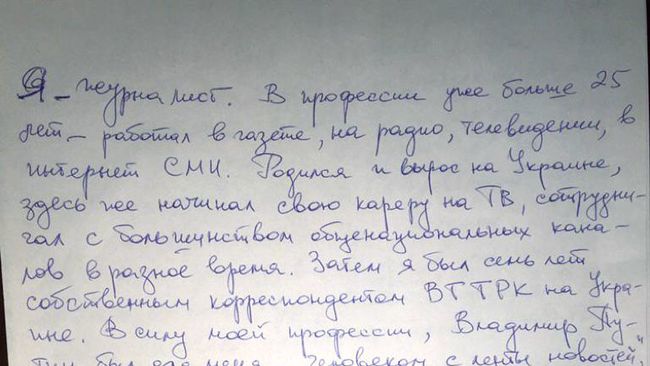 Я – журналист. В профессии уже больше 25
лет – работал в газете, на радио, телевидении, в
интернет СМИ. Родился и вырос на Украине,
здесь же начинал свою кареру на ТВ, сотрудни-
чал с большинством общенациональных кана-
лов в разное время. Затем я был семь лет
собственным корреспондентом ВГТРК на Укра-
ине. В силу моей профессии, Владимир Пу-
тин был для меня "человеком с ленты новостей"